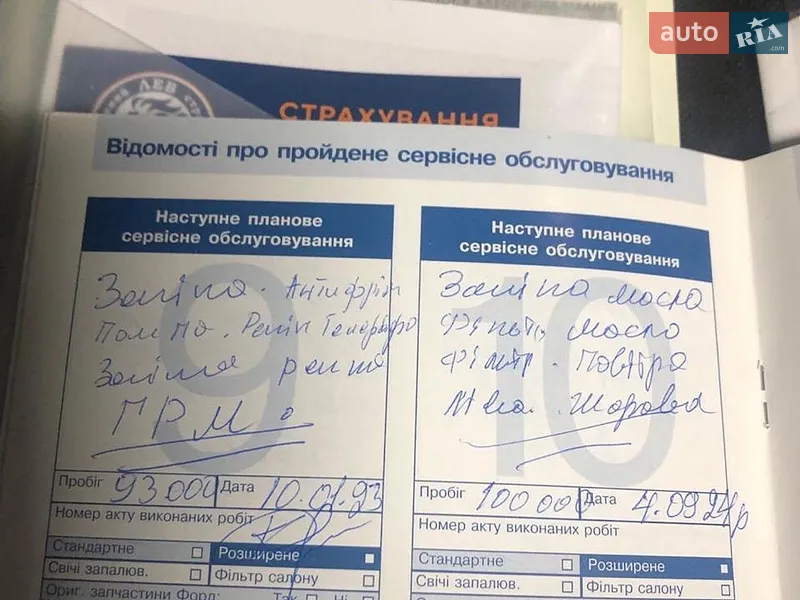 auto RIA .com
ЛЕВ
СТРАХУВАННЯ
Відомості про пройдене сервісне обслуговування
Наступне планове
сервісне обслуговування
Заміна. Антифріз
Помпа. Ремін Генератора
Заміна реміня
ГРМ.
Пробіг 93 000 Дата 10.01.23
Номер акту виконаних робіт
Стандартне Розширене
Свічі запалюв. Фільтр салону
Ориг. запчастини Форд: Так Ні
Наступне планове
сервісне обслуговування
Заміна масла
Фільтр масло
Фільтр. Повітра
Пробіг 100 000 Дата 4.09 24р
Номер акту виконаних робіт
Стандартне Розширене
Свічі запалюв. Фільтр салону